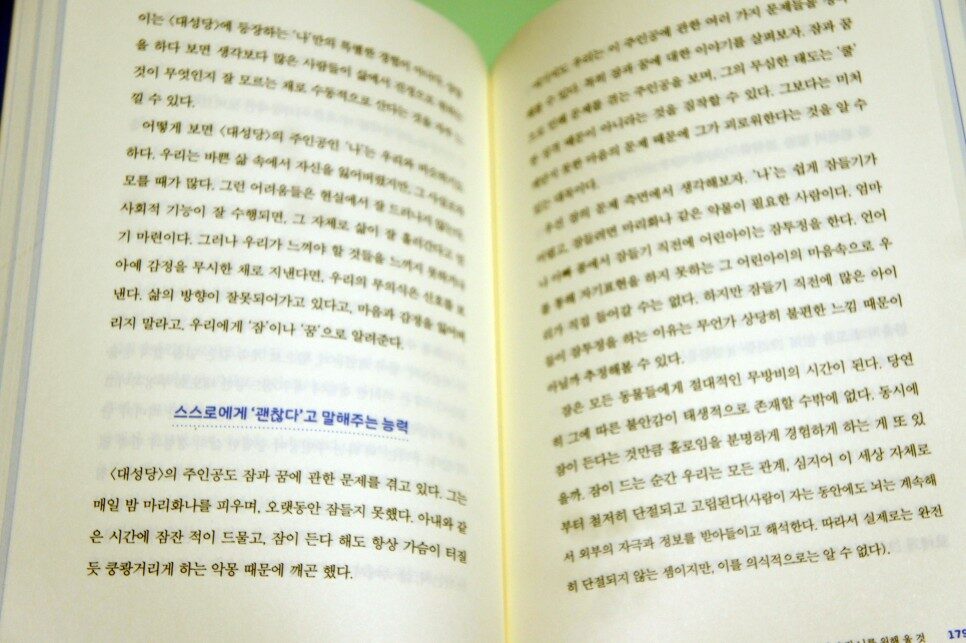 이는 〈대성당〉에 등장하는 '나'만의 특별한 경험이 아니다.
을 하다 보면 생각보다 많은 사람들이 삶에서 진정으로 원하는
것이 무엇인지 잘 모르는 채로 수동적으로 산다는 것을 자주 느
낄 수 있다.
어떻게 보면 〈대성당〉의 주인공인 '나'는 우리와 비슷하기도
하다. 우리는 바쁜 삶 속에서 자신을 잃어버렸지만, 그 사실조차
모를 때가 많다. 그런 어려움들은 현실에서 잘 드러나지 않는다.
사회적 기능이 잘 수행되면, 그 자체로 삶이 잘 흘러간다고 믿
기 마련이다. 그러나 우리가 느껴야 할 것들을 느끼지 못하거나
아예 감정을 무시한 채로 지낸다면, 우리의 무의식은 신호를 보
낸다. 삶의 방향이 잘못되어가고 있다고, 마음과 감정을 잃어버
리지 말라고, 우리에게 '잠'이나 '꿈'으로 알려준다.
스스로에게 '괜찮다'고 말해주는 능력
〈대성당〉의 주인공도 잠과 꿈에 관한 문제를 겪고 있다. 그는
매일 밤 마리화나를 피우며, 오랫동안 잠들지 못했다. 아내와 같
은 시간에 잠잔 적이 드물고, 잠이 든다 해도 항상 가슴이 터질
듯 쿵쾅거리게 하는 악몽 때문에 깨곤 했다.
우리는 이 주인공에 관한 여러 가지 문제들을
있다. 특히 잠과 꿈에 대한 이야기를 살펴보자. 잠과 꿈
문제를 겪는 주인공을 보며, 그의 무심한 태도는 '쿨'
한 성격 때문이 아니라는 것을 짐작할 수 있다. 그보다는 미처
못한 마음의 문제 때문에 그가 괴로워한다는 것을 알 수
있는 대목이다.
우선 잠의 문제 측면에서 생각해보자. '나'는 쉽게 잠들기가
어렵고, 잠들려면 마리화나 같은 약물이 필요한 사람이다. 엄마
나 아빠 품에서 잠들기 직전에 어린아이는 잠투정을 한다. 언어
를 통해 자기표현을 하지 못하는 그 어린아이의 마음속으로 우
리가 직접 들어갈 수는 없다. 하지만 잠들기 직전에 많은 아이
들이 잠투정을 하는 이유는 무언가 상당히 불편한 느낌 때문이
아닐까 추정해볼 수 있다.
잠은 모든 동물들에게 절대적인 무방비의 시간이 된다. 당연
히 그에 따른 불안감이 태생적으로 존재할 수밖에 없다. 동시에
잠이 든다는 것만큼 홀로임을 분명하게 경험하게 하는 게 또 있
을까. 잠이 드는 순간 우리는 모든 관계, 심지어 이 세상 자체로
부터 철저히 단절되고 고립된다(사람이 자는 동안에도 뇌는 계속해
서 외부의 자극과 정보를 받아들이고 해석한다. 따라서 실제로는 완전
히 단절되지 않는 셈이지만, 이를 의식적으로는 알 수 없다).
위해 울 것 179